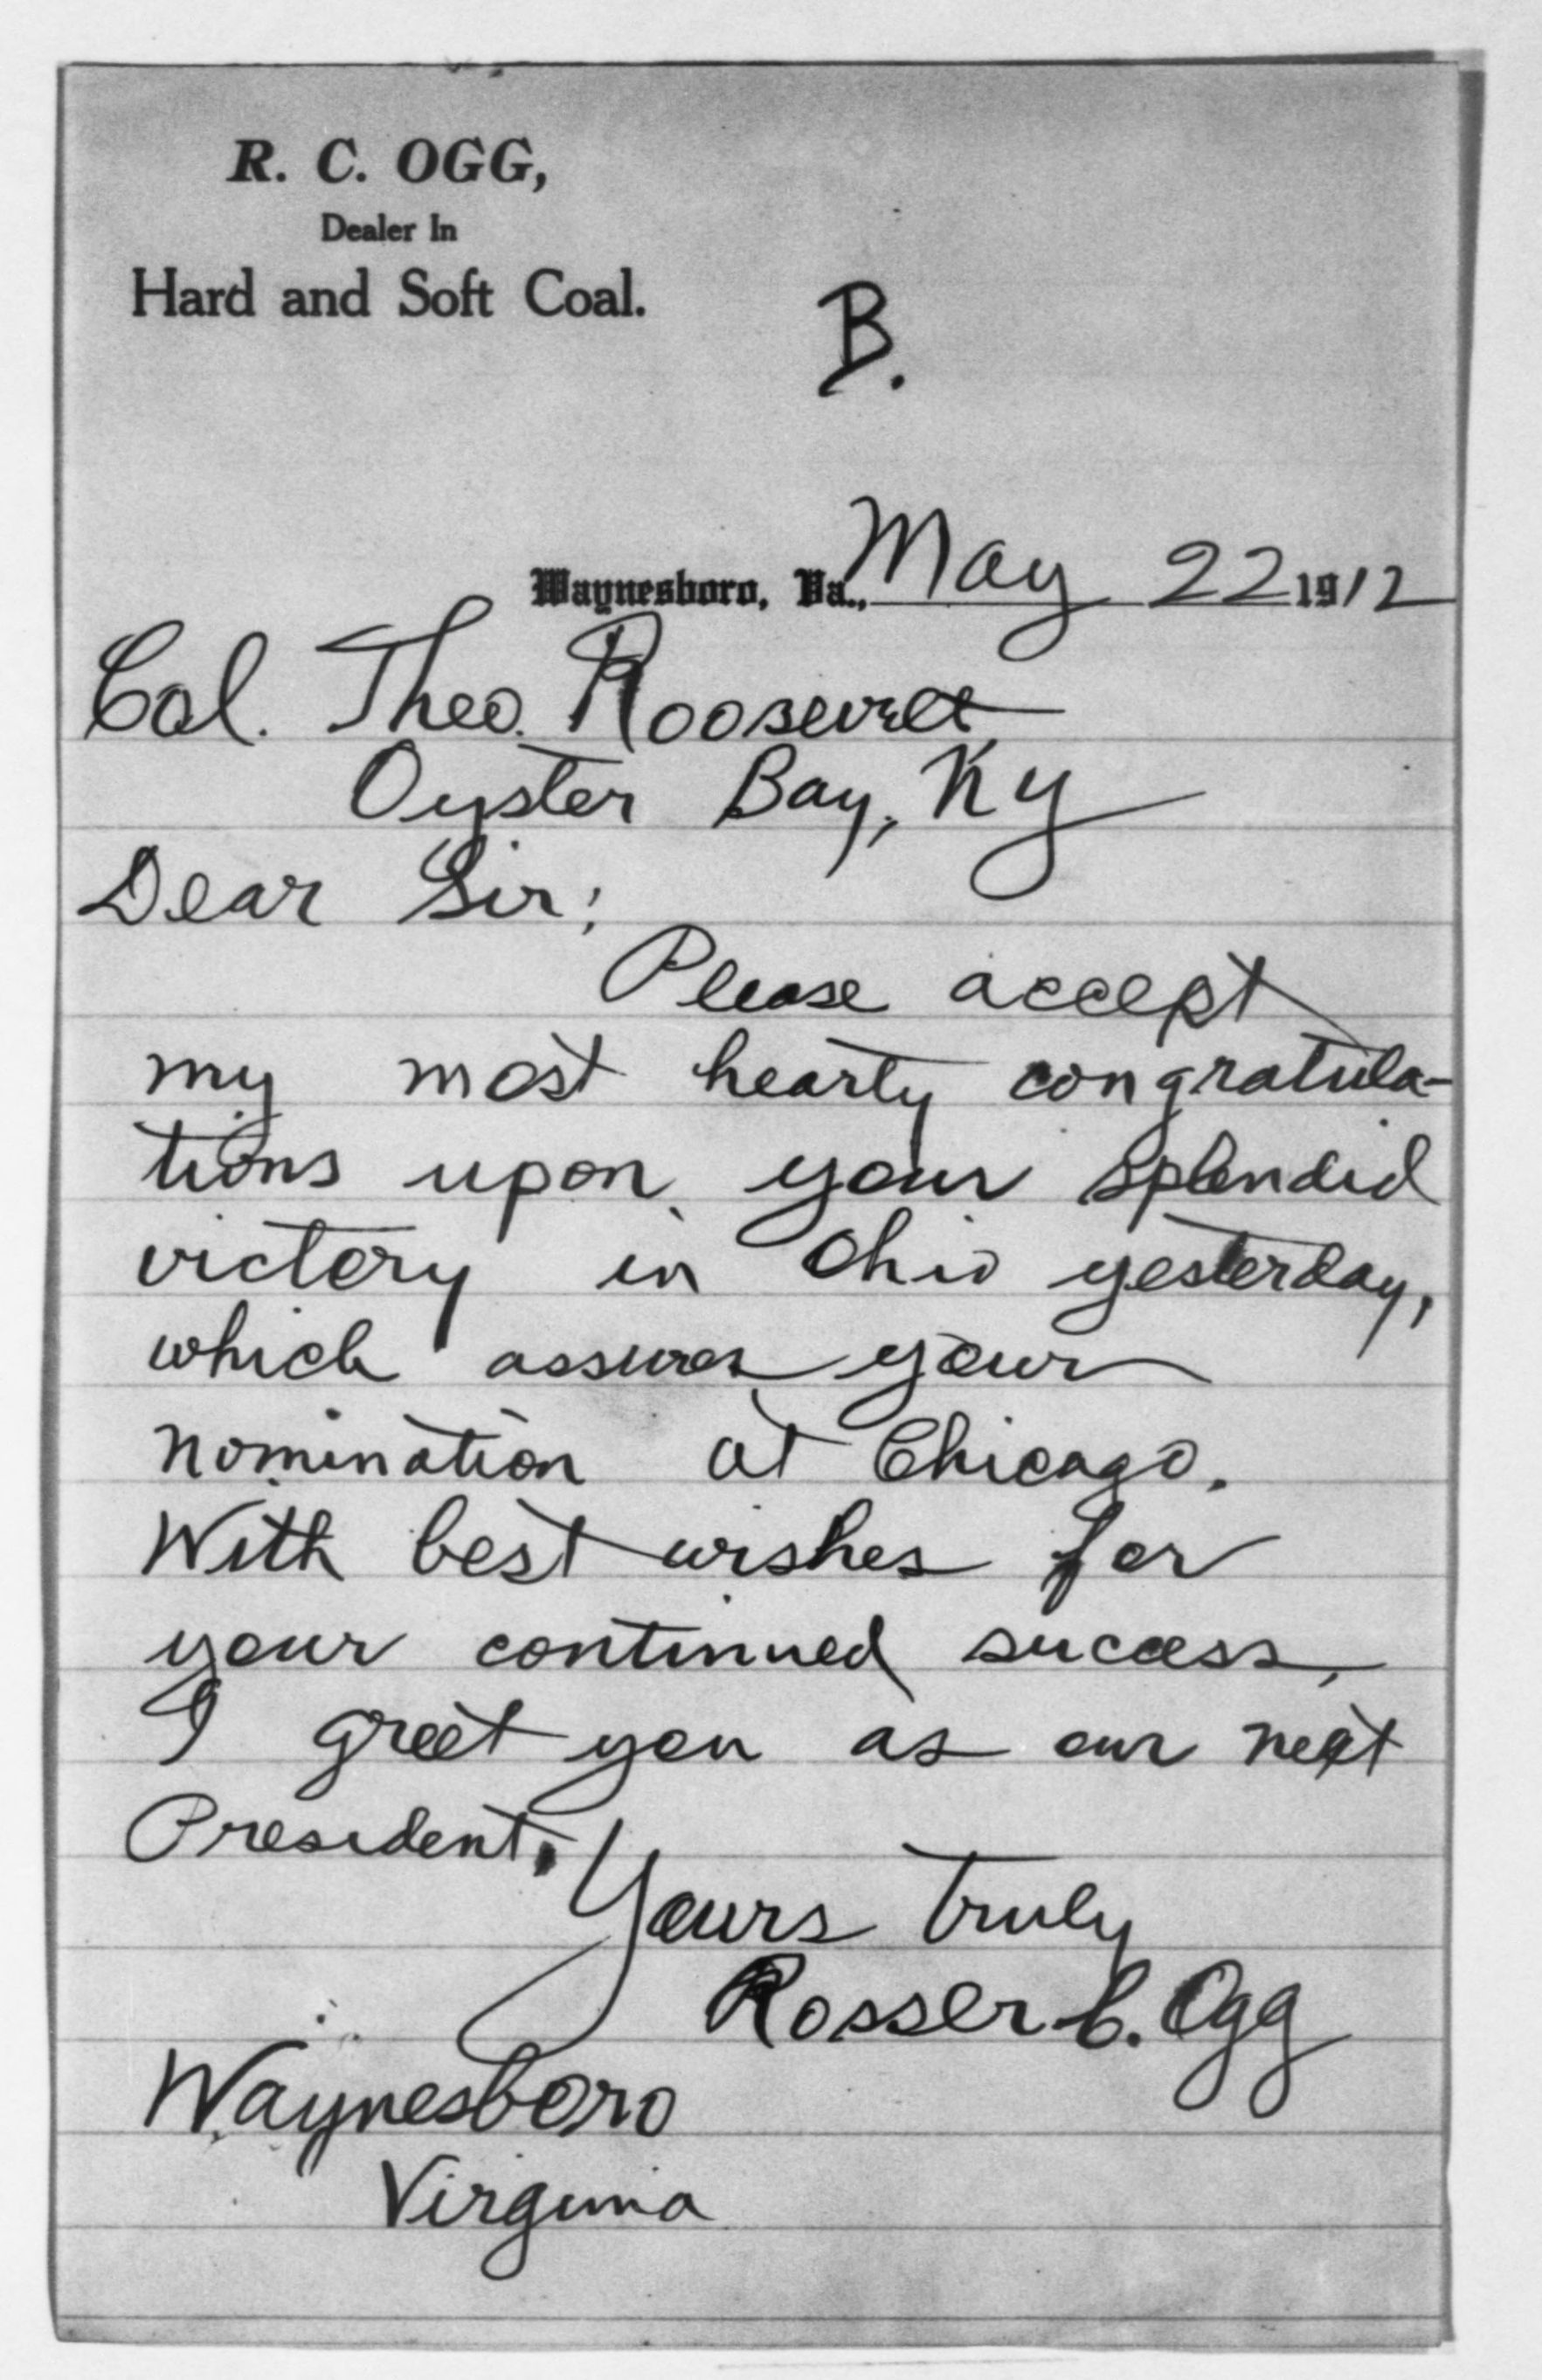 R. C. OGG,
Dealer In
Hard and Soft Coal.
B.
Waynesboro, Va., May 22 1912
Col. Theo. Roosevelt
Oyster Bay, Ny
Dear Sir;
Please accept
my most hearty congratula-
tions upon your splendid
victory in Ohio yesterday,
which assures your
nomination at Chicago.
With best wishes for
your continued success,
I greet you as our next
President.
Yours truly
Rosser C. Ogg
Waynesboro
Virginia